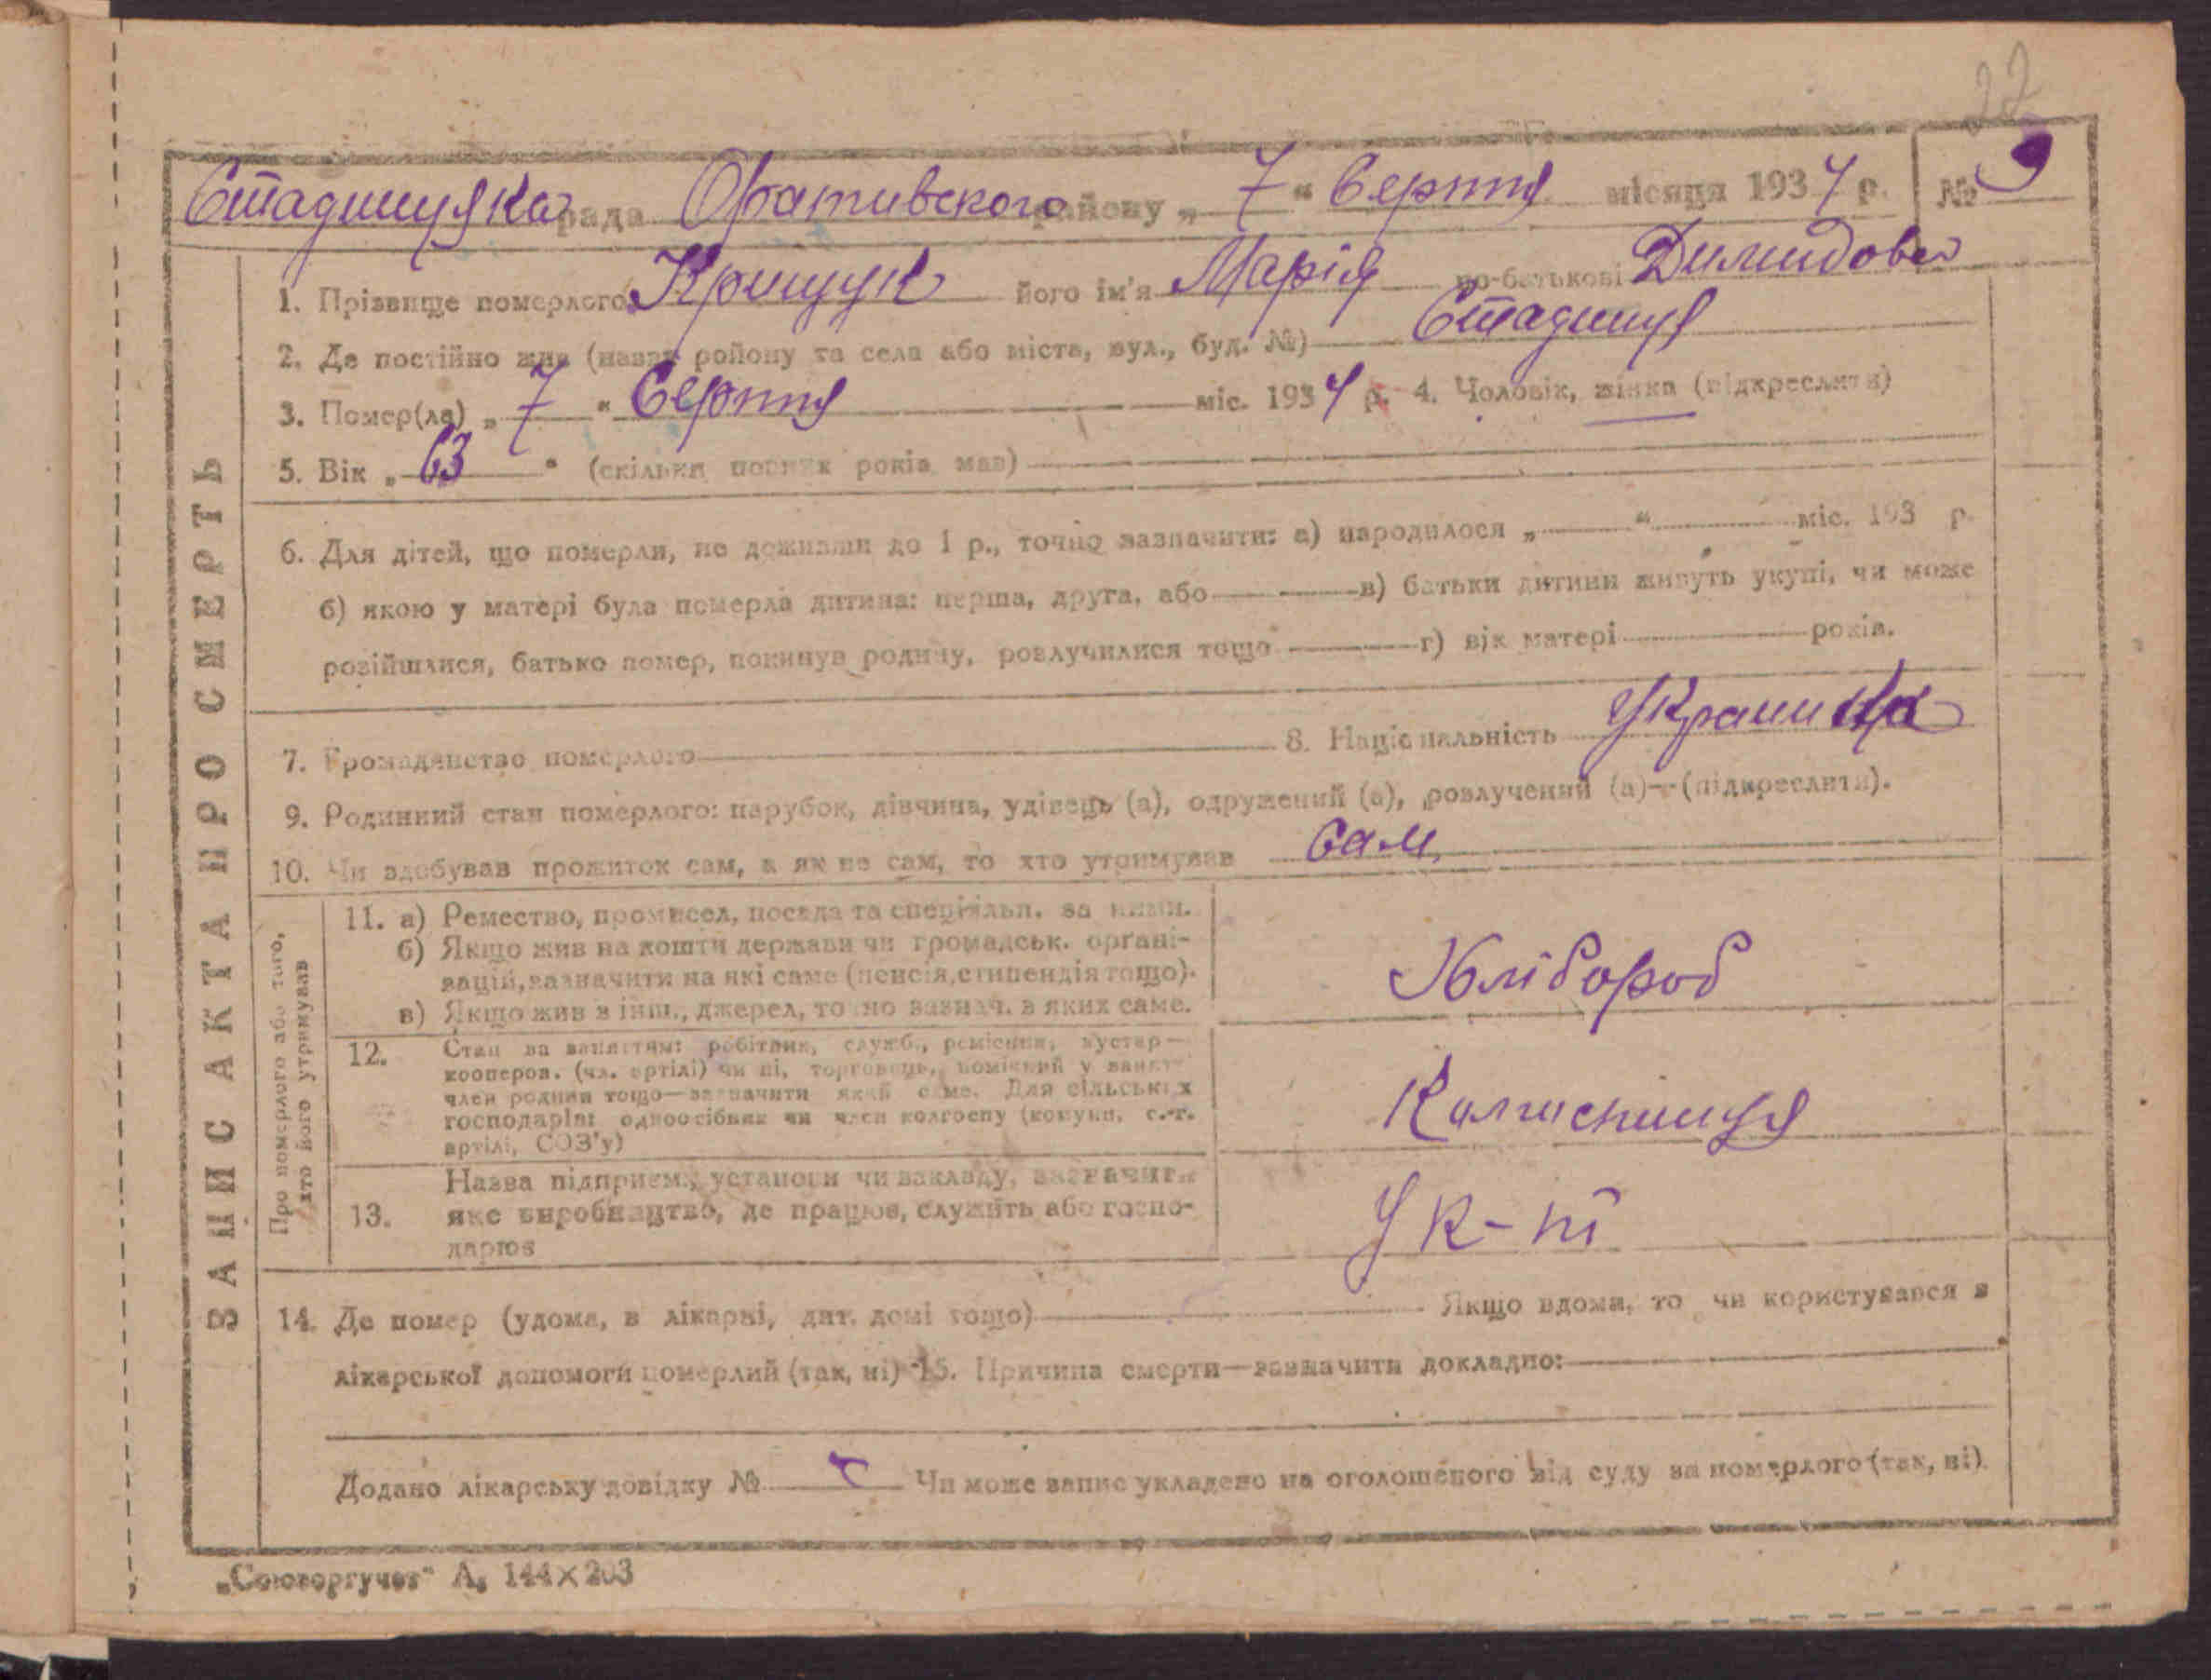 22
Стадницяка рада Оративского району „ 7 “ Серпня місяця 1934 р. № 9
1. Прізвище померлого Крищук його ім'я Марія по-батькові Димидова
2. Де постійно жив (назва ройону та села або міста, вул., буд. №) Стадниця
3. Помер(ла) „ 7 “ Серпня міс. 1934 р. 4. Чоловік, жінка (підкреслити)
5. Вік „ 63 “ (скільки повних років мав)
6. Для дітей, що померли, не доживши до 1 р., точно зазначити: а) народилося „ “ міс. 193 р.
б) якою у матері була померла дитина: перша, друга, або в) батьки дитини живуть укупі, чи може
розійшлися, батько помер, покинув родину, розлучилися тощо г) вік матері років.
7. Громадянство померлого 8. Національність Украинка
9. Родинний стан померлого: парубок, дівчина, удівець (а), одружений (а), розлучений (а)—(підкреслити).
10. Чи здобував прожиток сам, а як не сам, то хто утримував Сам
ЗАПИС АКТА ПРО СМЕРТЬ
Про померлого або того, хто його утримував
11. а) Ремество, промисел, посада та спеціяльн. за ними.
б) Якщо жив на кошти держави чи громадськ. органі-
зацій, зазначити на які саме (пенсія, стипендія тощо).
в) Якщо жив з інш., джерел, точно зазнач. з яких саме.
Хлібороб
12. Стан за заняттям: робітник, служб., ремісник, кустар—
кооперов. (чл. артілі) чи ні, торговець, поміжний у занят.
член родини тощо—зазначити який саме. Для сільських
господарів: одноосібник чи член колгоспу (комуни, с.-г.
артілі, СОЗ'у)
13. Назва підприєм., установи чи закладу, зазначит.
яке виробництво, де працює, служить або госпо-
дарює
У к-пі
14. Де помер (удома, в лікарні, дит. домі тощо) Якщо вдома, то чи користувався з
лікарської допомоги померлий (так, ні) 15. Причина смерти—зазначити докладно:
Додано лікарську довідку № Чи може запис укладено на оголошеного від суду за померлого (так, ні).
„Союзоргучет“ А₅ 144×203